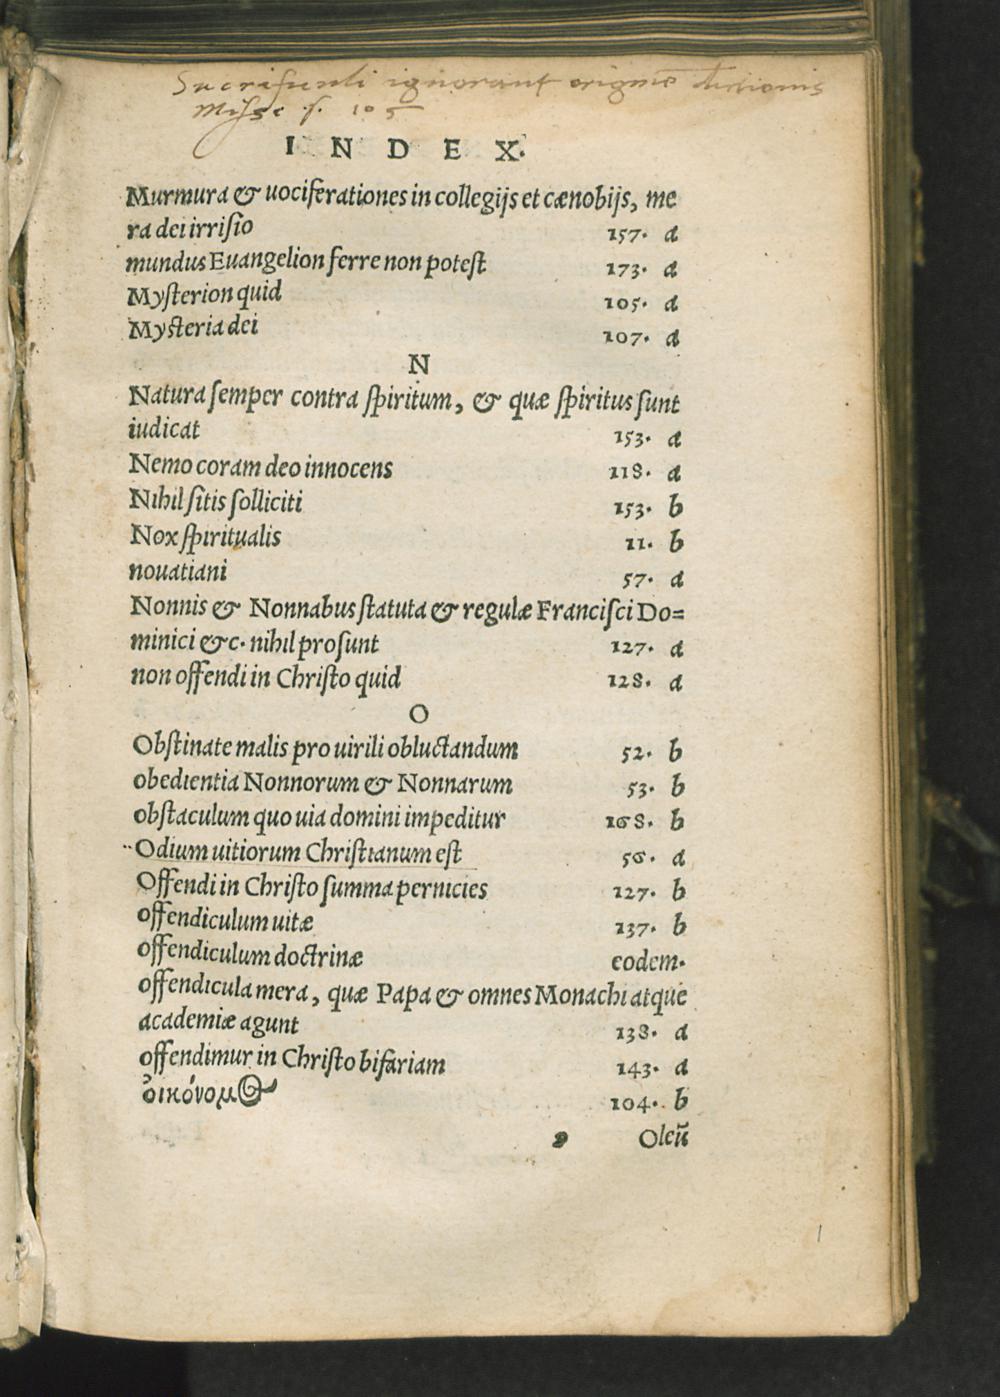 Sacrifunli ignorant originē dictionis
Misse f. 105
INDEX.
Murmura & uociferationes in collegijs et cænobijs, me
ra dei irrisio 157. a
mundus Euangelion ferre non potest 173. a
Mysterion quid 105. a
Mysteria dei 107. a
N
Natura semper contra spiritum, & quæ spiritus sunt
iudicat 153. a
Nemo coram deo innocens 118. a
Nihil sitis solliciti 153. b
Nox spiritualis 11. b
nouatiani 57. a
Nonnis & Nonnabus statuta & regulæ Francisci Do=
minici &c. nihil prosunt 127. a
non offendi in Christo quid 128. a
O
Obstinate malis pro uirili obluctandum 52. b
obedientia Nonnorum & Nonnarum 53. b
obstaculum quo uia domini impeditur 168. b
Odium uitiorum Christianum est 56. a
Offendi in Christo summa pernicies 127. b
offendiculum uitæ 137. b
offendiculum doctrinæ eodem.
offendicula mera, quæ Papa & omnes Monachi atque
academiæ agunt 138. a
offendimur in Christo bifariam 143. a
ὀικόνομος 104. b
Oleū